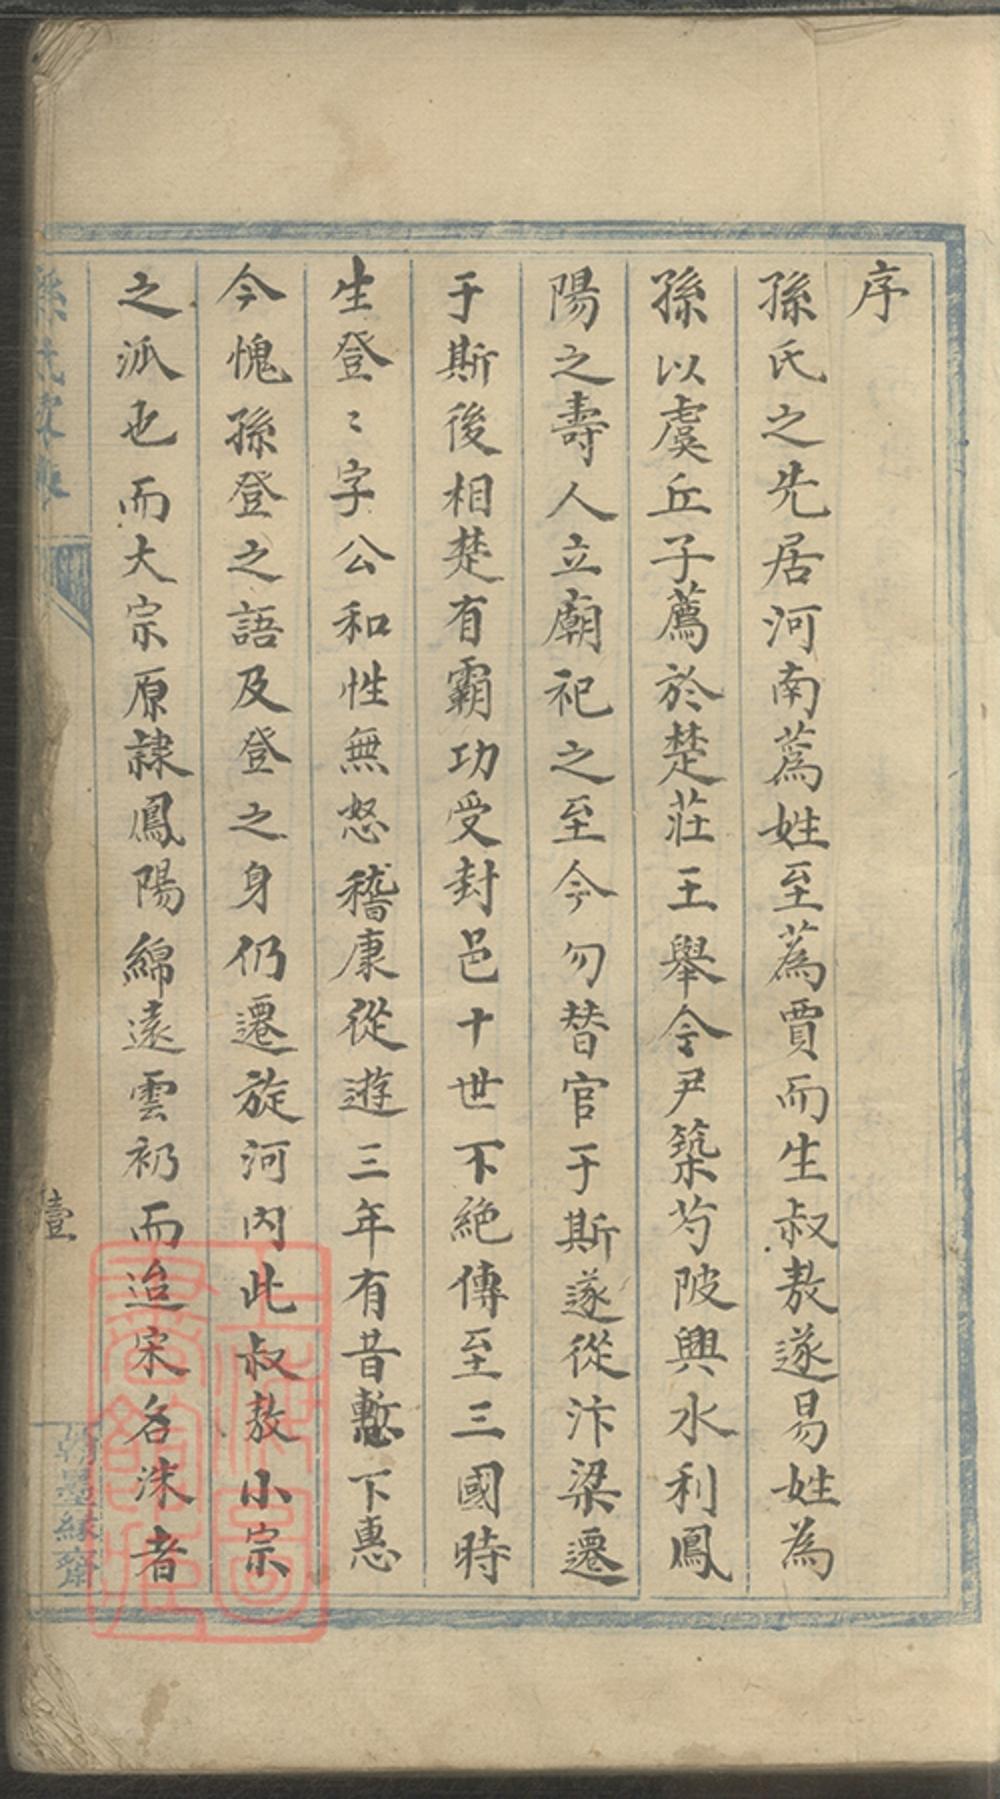 序
孫氏之先居河南蒍姓至蒍賈而生叔敖遂易姓為
孫以虞丘子薦於楚莊王舉令尹築芍陂興水利鳳
陽之壽人立廟祀之至今勿替官于斯遂從汴梁遷
于斯後相楚有霸功受封邑十世不絕傳至三國時
生登〻字公和性無怒嵇康從遊三年有昔慙下惠
今愧孫登之語及登之身仍遷旋河內此叔敖小宗
之派也而大宗原隸鳳陽綿遠雲礽而迨宋名洙者
孫氏家乘
壹
翰墨緣齋
上海圖書館藏